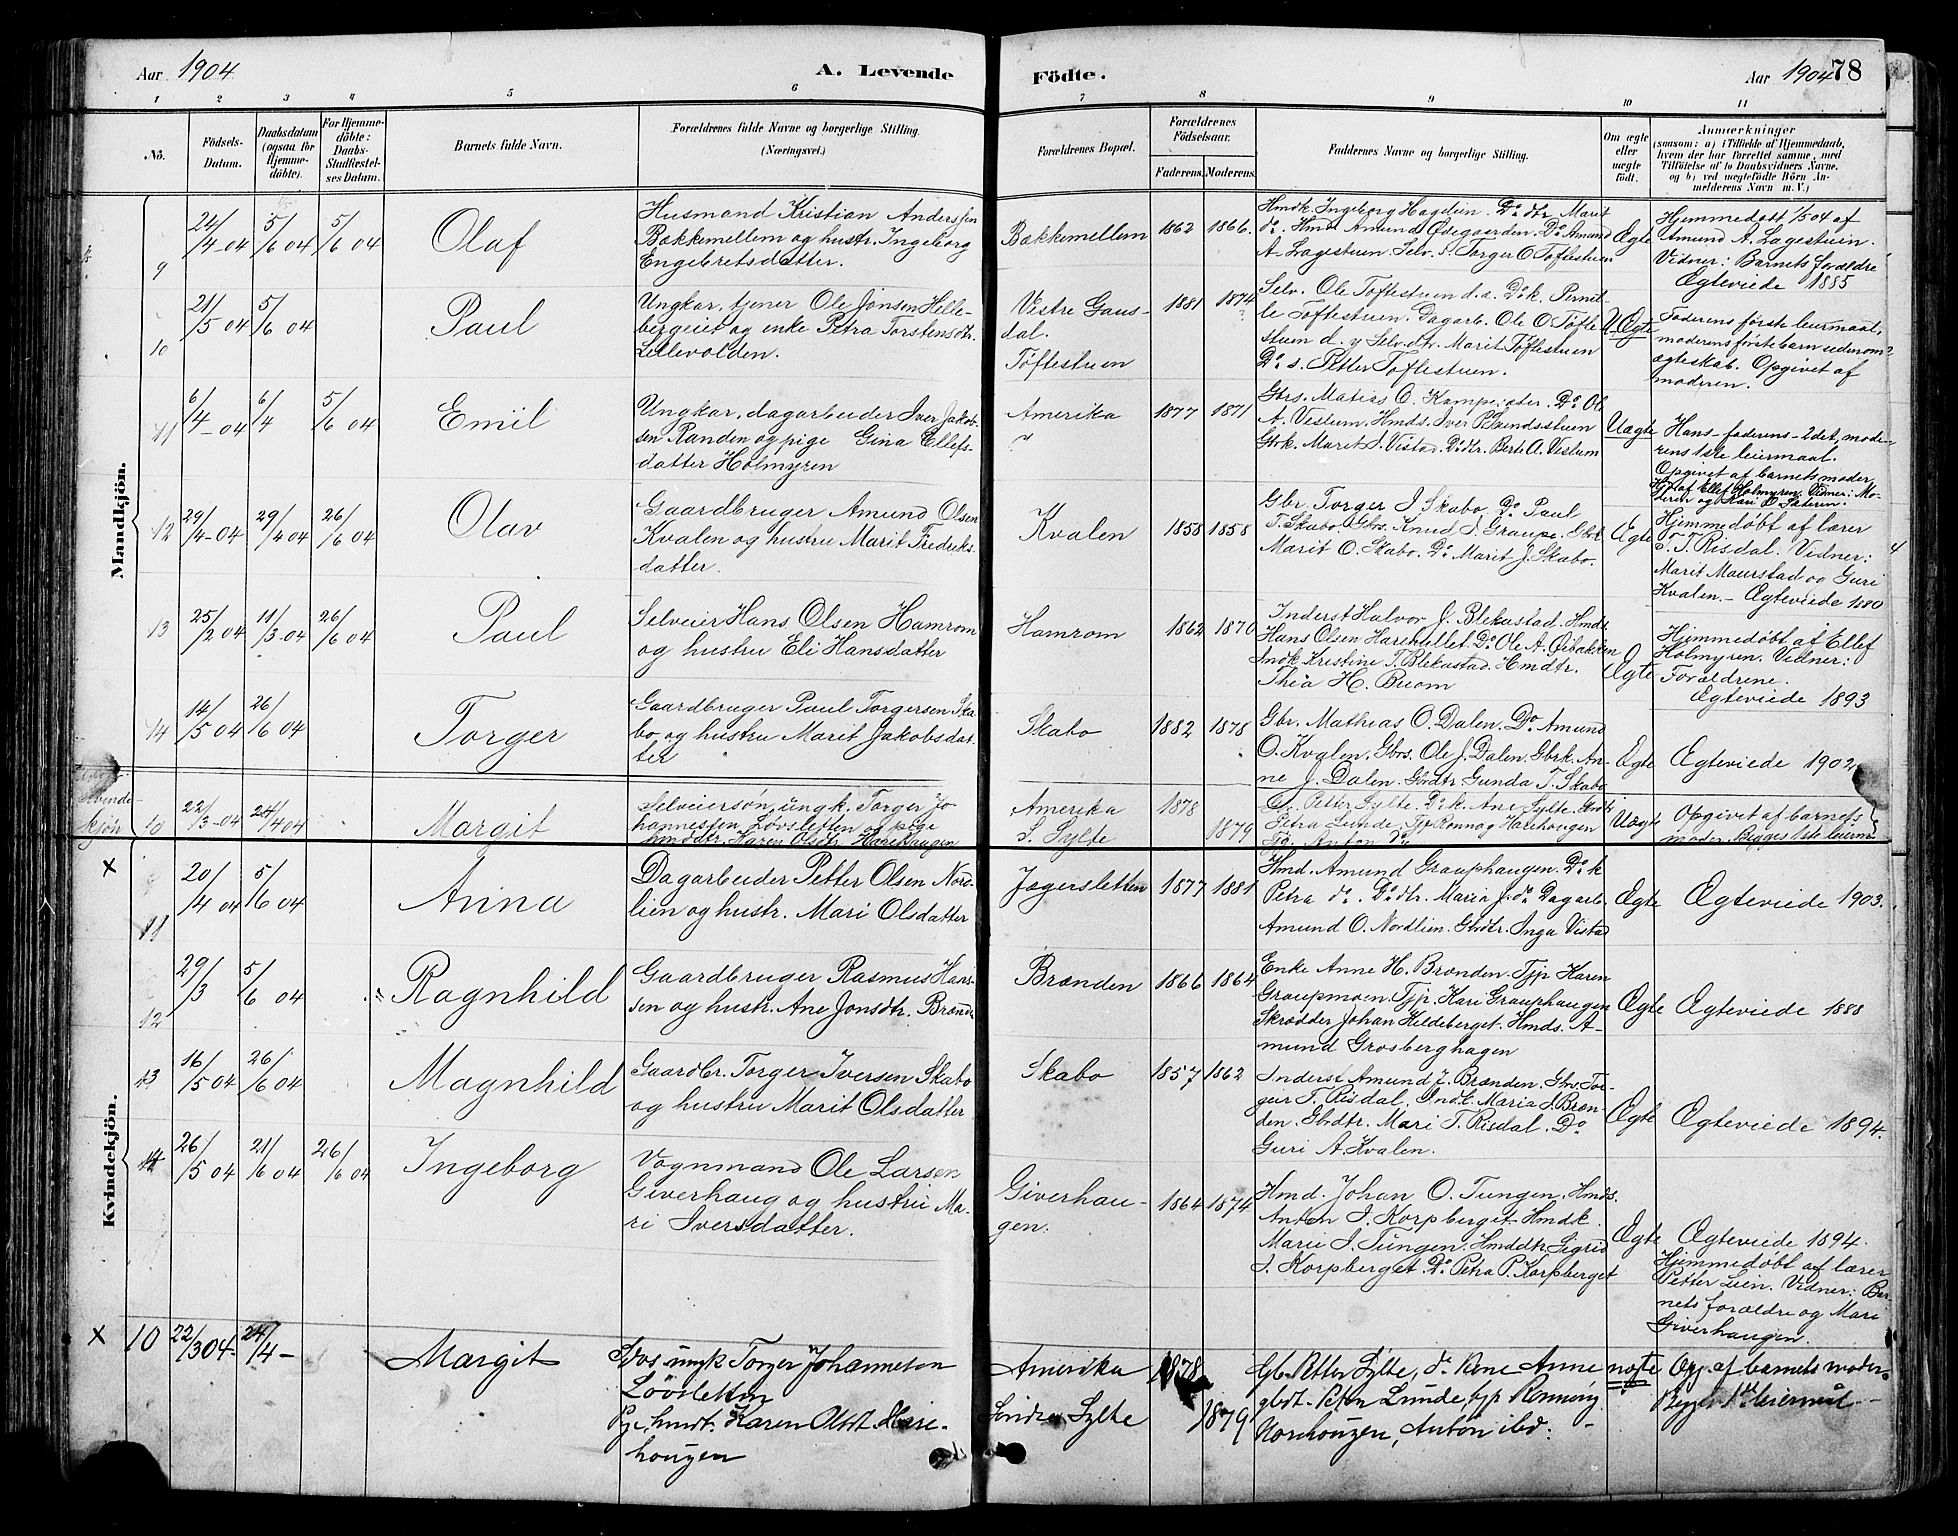 Aar 1904
A. Levende
Födte.
Aar 1904 78
1 2 3 4 5 6 7 8 9 10 11
No.
Födsels-
Datum.
Daabsdatum
(ogsaa for
Hjemme-
döbte).
For Hjemme-
döbte:
Daabs-
Stadfæstel-
ses Datum.
Barnets fulde Navn.
Forældrenes fulde Navne og borgerlige Stilling.
(Næringsvei.)
Forældrenes Bopæl.
Forældrenes
Födselsaar.
Faderens. Moderens.
Faddernes Navne og borgerlige Stilling.
Om ægte
eller
uægte
födt.
Anmærkninger
(saasom: a) i Tilfælde af Hjemmedaab,
hvem der har forrettet samme, med
Tilföielse af to Daabsvidners Navne.
og b) ved uægtefödte Börn An-
melderens Navn m. V.)
Mandkjön.
9
24/4-04
5/6 04
5/6 04
Olaf
Husmand Kristian Andersen
Bakkemellem og hustr. Ingeborg
Engebretsdatter.
Bakkemellem
1862 1866.
Hmdk. Ingeborg Hageleien. Do dtr Marit
do. Hmd. Amund Ødegaarden. Do Amund
A. Lagestuen Selv. s. Torger O Toftestuen
Ægte
Hjemmedøbt 1/5 04 af
Amund A. Lagestuen.
Vidner: Barnets forældre
Ægteviede 1885
10
21/5 04
5/6 04
Paul
Ungkar, tjener Ole Jonsen Helle-
bergeiet og enke Petra Torstensdtr.
Lillevolden.
Vestre Gaus-
dal.
Toftestuen
1881 1874
Selv. Ole Toftestuen d.æ. Do k. Pernil-
le Toftestuen. Dagarb. Ole O Tofte-
stuen d. y Selv. dtr. Marit Toftestuen
Do s. Petter Toftestuen.
U.Ægte
Faderens første leiermaal,
moderens første barn udenom
ægteskab. Opgivet af
moderen.
11
6/4-04
6/4
5/6 04
Emil
Ungkar, dagarbeider Iver Jakob-
sen Randen og pige Gina Ellefs-
datter Holmyren
Amerika
"
1877 1871
Gbrs. Matias O. Kampesæter. Do Ole
A. Vistum. Hmds. Iver
Gbrk. Marit I. Vistad. Do dtr. Berte A. Vislum
Uægte
Hans - faderens - 2det, mode-
rens 1ste leiermaal.
Opgivet af barnets moder
Hj. af Ellef Holmyren. Vidner: Mo-
deren og Kari
12
29/4-04
29/4 04
26/6 04
Olav
Gaardbruger Amund Olsen
Kvalen og hustru Marit Fredriks-
datter.
Kvalen
1858 1858
Gbr. Torger I Skabo. Do Paul
T. Skabo. Gbrs. Knud I. Graupe. Gbrk
Marit O. Skabo. Do Marit J. Skabo.
Ægte
Hjemmedøbt af lærer
P. T. Risdal. Vidner:
Marit Maurstad og Guri
Kvalen. - Ægteviede 1880
4
13
25/2 04
11/3 04
26/6 04
Paul
Selveier Hans Olsen Hamrom
og hustru Eli Hansdatter
Hamrom
1862 1870
Inderst Halvor J. Blekastad. Hmdr
Hans Olsen Harehellet. Do Ole A. Øibakken
Indk. Kristine T. Blekastad. Hmdtr.
Thea H. Buom
Ægte
Hjemmedøbt af Ellef
Holmyren. Vidner:
Forældrene.
Ægteviede 1893
14
14/5 04
26/6 04
Torger
Gaardbruger Paul Torgersen Ska-
bo og hustru Marit Jakobsdat-
ter
Skabo
1882 1878
Gbr. Mathias O. Dalen. Do Amund
O. Kvalen. Gbrs. Ole J. Dalen. Gbrk. An-
ne J. Dalen. Gbrdtr Gunda T. Skabo
Ægte
Ægteviede 1902
Kvinde-
kjön
10
22/3-04
24/4 04
Margit
Selveiersøn, ungk. Torger Jo-
hannessen Løvsletten og pige
hmddtr. Karen Olsdtr. Harehaugen
Amerika
S. Sylte
1878
1879
Petter Sylte. Do k. Ane Sylte. Gbdtr
Petra Lunde, Tjp Rønnog Harehaugen
Tj. Anton Do
Uægte
Opgivet af barnets
moder. Begges 1ste leierm.
Kvindekjön.
×
11
20/4 04
5/6 04
Anna
Dagarbeider Petter Olsen Nord-
lien og hustr. Mari Olsdatter
Jøgersletten
1877 1881
Hmd. Amund Grauphaugen. Do k
Petra do. Do dtr. Maria J. do Dagarb.
Amund O. Nordlien. Gbrdtr. Inga Vistad
Ægte
Ægteviede 1903.
12
29/3
5/6 04
Ragnhild
Gaardbruger Rasmus Han-
sen og hustr. Ane Jonsdtr. Brænden
Brænden
1866 1864
Enke Anne H. Brænden. Tjp Karen
Graupmoen. Tjp. Kari Grauphaugen
Skrædder Johan Hildeberget. Hmds. A-
mund Grosberghagen
Ægte
Ægteviede 1888
13
16/5 04
26/6 04
Magnhild
Gaardbr. Torger Iversen Skabo
og hustru Marit Olsdatter
Skabo
1857 1862
Inderst Amund J. Brænden. Gbrs. Tor-
geir T. Risdal, Indk. Maria J. Bræn-
den. Gbrdtr. Mari T. Risdal. Do
Guri A. Kvalen.
Ægte
Ægteviede 1894.
14
26/5 04
21/6 04
26/6 04
Ingeborg
Vognmand Ole Larsen
Giverhaug og hustru Ma-
ri Iversdatter.
Giverhau-
gen.
1864 1874
Hmd. Johan O. Tungen. Hmds.
Anton I. Korpberget. Hmdk.
Marie I. Tungen. Hmddtr. Sigrid
I. Korpberget. Do Petra P. Korpberget
Ægte
Ægteviede 1894.
Hjemmedøbt af lærer
Petter Lien. Vidner: Bar-
nets forældre og Mari
Giverhaugen.
×
10
22/3 04-
24/4-
Margit
ungk Torger Johannesen
Løvsletten
Pge, hmdt. Karen Olsdt. Hare-
haugen
Amerika
Søndre Sylte
1878
1879
Gb. Petter Sylte, do Kone Anne
gbdt. Petra Lunde, tjp Rønnog
Harehaugen, Anton ibd: -
uægte
Opg. af barnets moder.
Begges 1ste leiermaal -